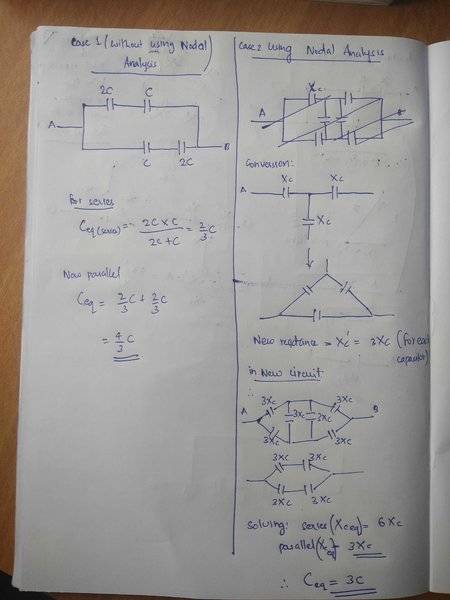 Case 1 (without using Nodal)
Analysis
2C C
A
B
C 2C
For series
Ceq(series) = 2C × C / 2C + C = 2/3 C
Now parallel
Ceq = 2/3 C + 2/3 C
= 4/3 C
Case 2 Using Nodal Analysis
Xc
A B
Conversion:
A Xc Xc
Xc
New reactance = Xc' = 3Xc (For each
capacitor)
in New circuit
A 3Xc 3Xc B
3Xc 3Xc
3Xc 3Xc
3Xc 3Xc
3Xc 3Xc
Solving: series (Xceq) = 6Xc
parallel (Xceq) = 3Xc
∴ Ceq = 3C